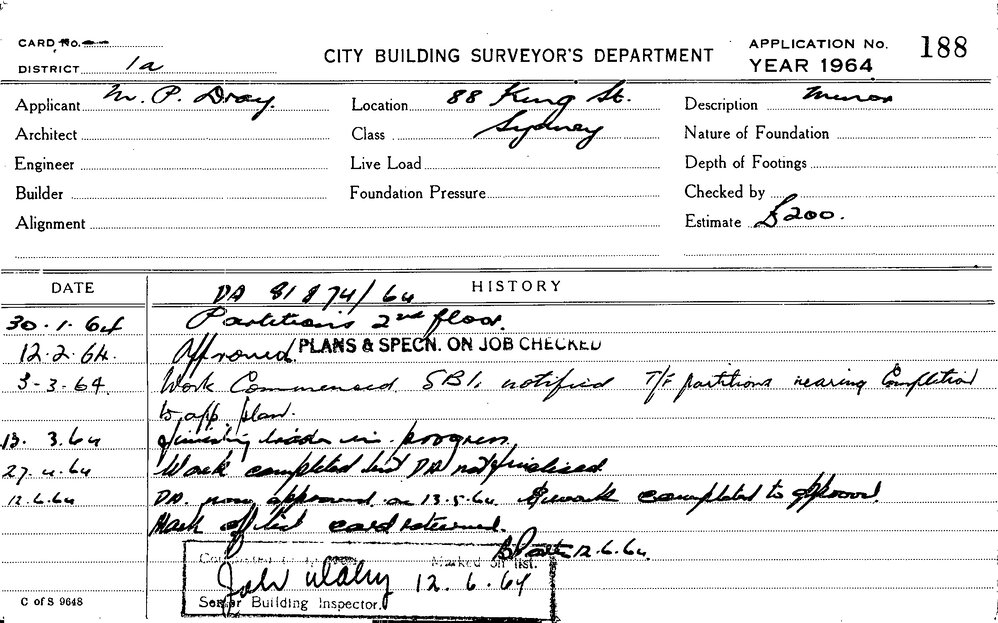 CARD No.
DISTRICT 1a
CITY BUILDING SURVEYOR'S DEPARTMENT
APPLICATION No. 188
YEAR 1964
Applicant M. P. Dray.
Location 88 King St.
Description Minor
Architect
Class Sydney
Nature of Foundation
Engineer
Live Load
Depth of Footings
Builder
Foundation Pressure
Checked by
Alignment
Estimate £200.
DATE
HISTORY
DA 818 74/64
30.1.64 Partitions 2nd floor.
12.2.64. Approved. PLANS & SPECN. ON JOB CHECKED
3-3-64 Work Commenced. SBI. notified T/F partitions nearing Completion
to app. plan.
13. 3.64 finishing trades in progress.
27.4.64 Work completed but DA not finalised
12.6.64 DA. now approved on 13.5.64 & work completed to approval.
Mark off list card returned.
12.6.64.
Marked off list.
12.6.64
Senior Building Inspector.
C of S 9648